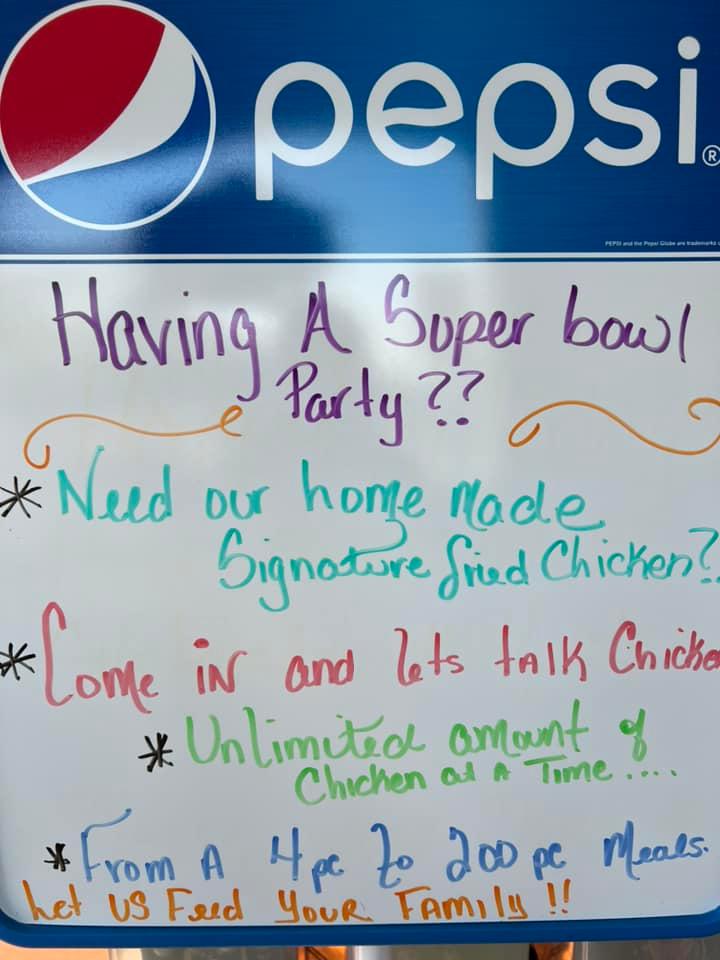 pepsi®
PEPSI and the Pepsi Globe are trademarks
Having A Super bowl
Party??
* Need our home made
Signature fried Chicken?
* Come iN and lets tAlK Chicke
* Unlimited amount of
Chicken at A Time....
* From A 4pc to 200 pc Meals.
Let US Feed YOUR FAMily !!